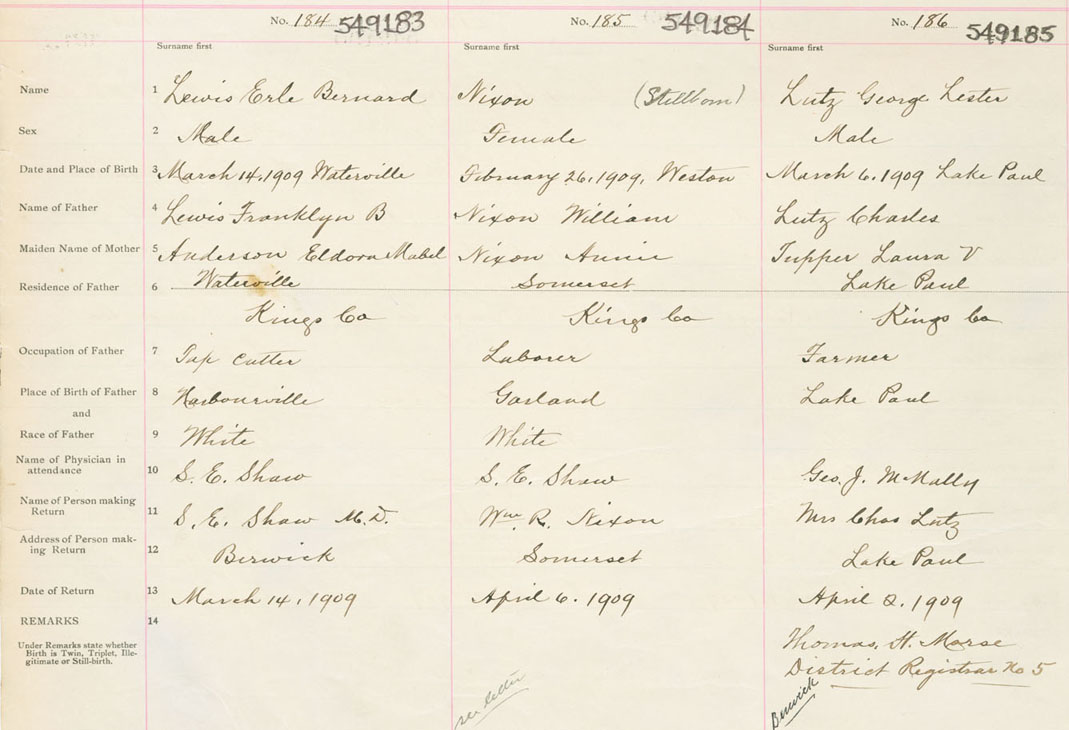 No. 184 549183 No. 185 549184 No. 186 549185
Surname first Surname first Surname first
Name 1 Lewis Erle Bernard Nixon (Stillborn) Lutz George Lester
Sex 2 Male Female Male
Date and Place of Birth 3 March 14, 1909 Waterville February 26, 1909, Weston March 6, 1909 Lake Paul
Name of Father 4 Lewis Franklyn B Nixon William Lutz Charles
Maiden Name of Mother 5 Anderson Eldora Mabel Nixon Annie Tupper Laura V
Residence of Father 6 Waterville Somerset Lake Paul
Kings Co Kings Co Kings Co
Occupation of Father 7 Cutter Laborer Farmer
Place of Birth of Father 8 Harbourville Garland Lake Paul
and
Race of Father 9 White White
Name of Physician in
attendance 10 S. E. Shaw S. E. Shaw Geo. J. McNally
Name of Person making
Return 11 S. E. Shaw M.D. Wm. R. Nixon Mrs Chas Lutz
Address of Person mak-
ing Return 12 Berwick Somerset Lake Paul
Date of Return 13 March 14, 1909 April 6. 1909 April 2, 1909
REMARKS 14
Under Remarks state whether
Birth is Twin, Triplet, Ille-
gitimate or Still-birth.
Thomas. H. Morse
District Registrar No 5
see letter
Berwick